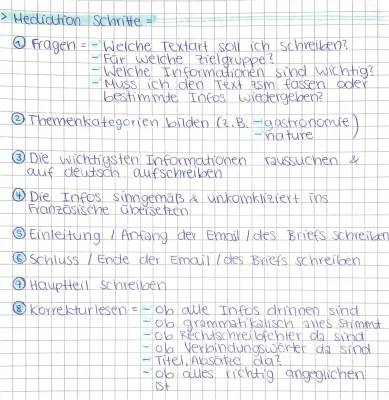 > Mediation Schritte =
① Fragen = - Welche Textart soll ich schreiben?
- Für welche Zielgruppe?
- Welche Informationen sind wichtig?
- Muss ich den Text zsm fassen oder
bestimmte Infos wiedergeben?
② Themenkategorien bilden (z.B. - gastronomie)
- nature
③ Die wichtigsten Informationen raussuchen &
auf deutsch aufschreiben
④ Die Infos sinngemäß & unkompliziert ins
Französische übersetzen
⑤ Einleitung / Anfang der Email / des Briefs schreiben
⑥ Schluss / Ende der Email / des Briefs schreiben
⑦ Hauptteil schreiben
⑧ Korrekturlesen = - ob alle Infos drinnen sind
- ob grammatikalisch alles stimmt
- ob Rechtschreibfehler da sind
- ob Verbindungswörter da sind
- Titel, Absätze da?
- ob alles richtig angeglichen
ist